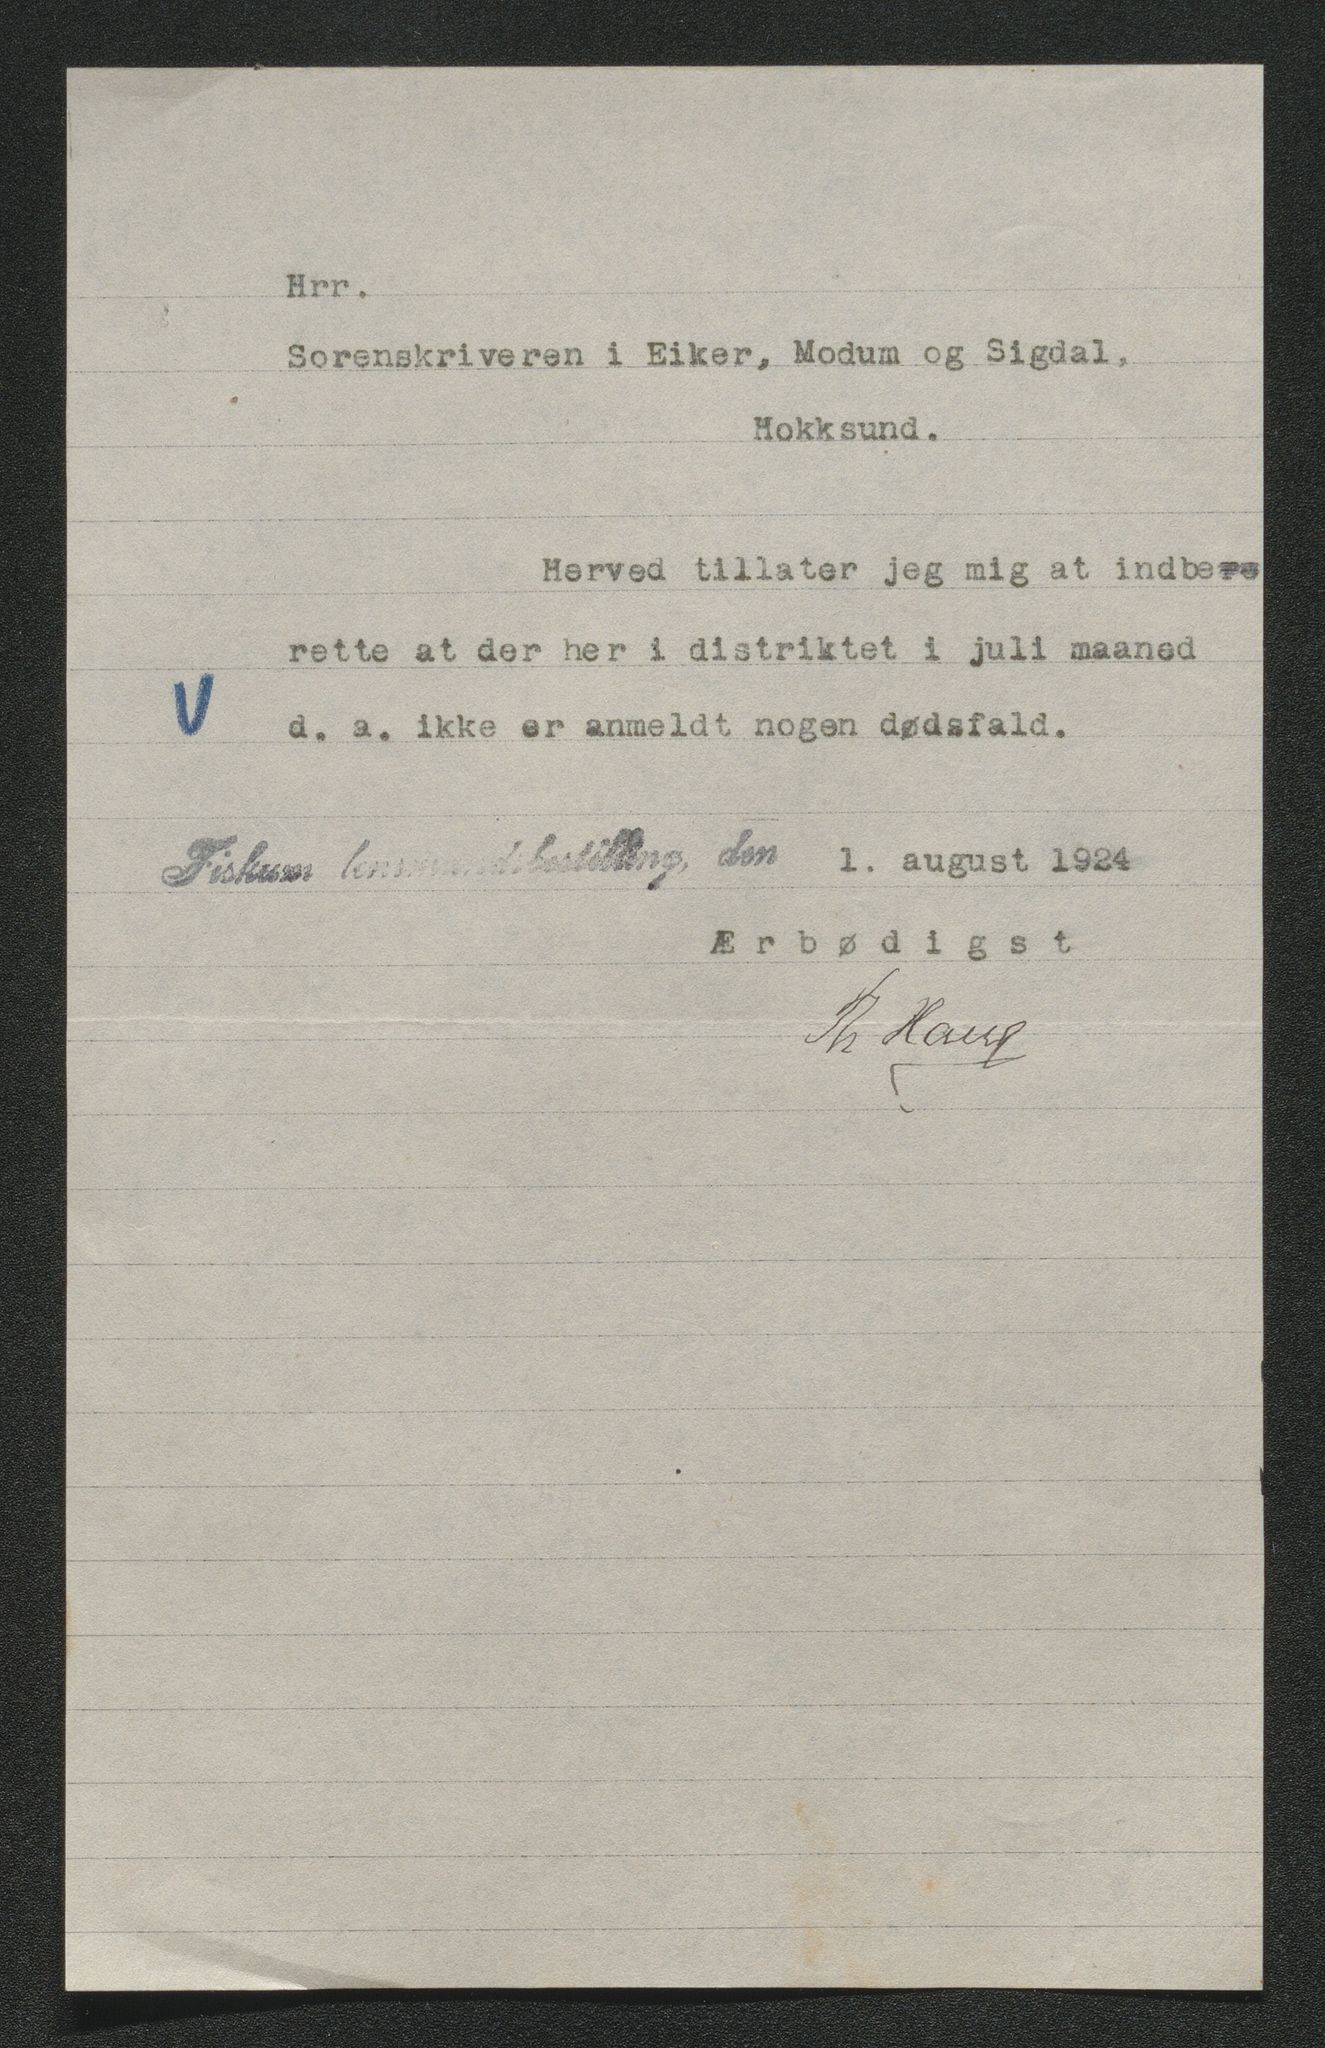 Hrr.
Sorenskriveren i Eiker, Modum og Sigdal,
Hokksund.
Herved tillater jeg mig at indbere
rette at der her i distriktet i juli maaned
V
d. a. ikke er anmeldt nogen dødsfald.
Fiskum lensmandsbestilling, den 1. august 1924
Ærbødigst
Th Haug